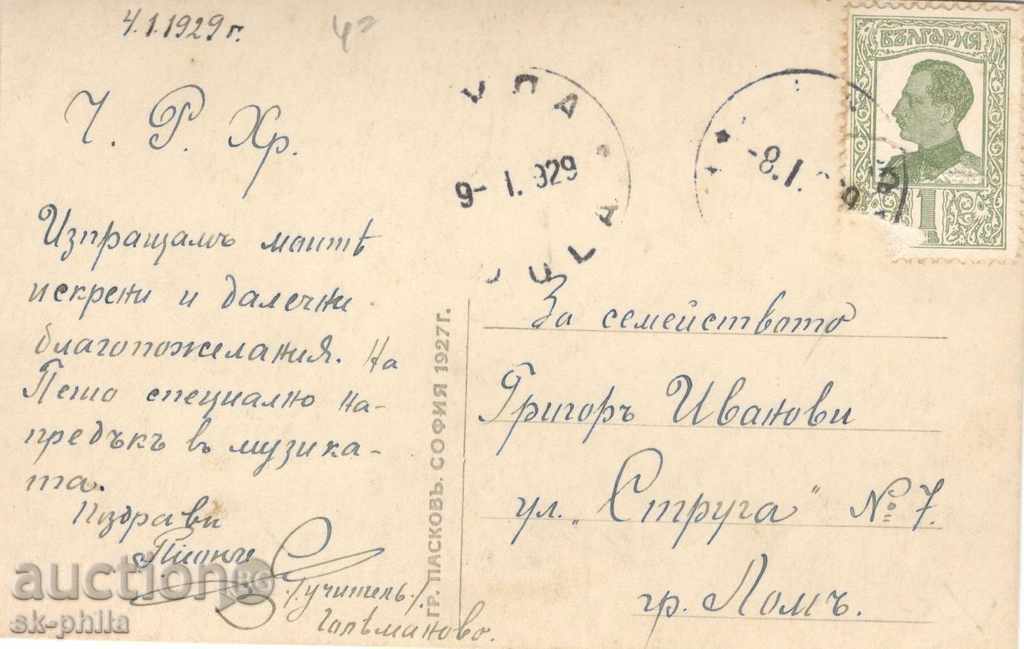 4.1.1929 г.
Ч. Р. Хр.
Изпращамъ моитѣ
искрени и далечни
благопожелания. На
Пешо специално на-
предъкъ въ музика-
та.
Поздрави
/учитель/.
Голѣманово.
ГР. ПАСКОВЪ. СОФИЯ 1927 Г.
9-I.929
-8.I.
БЪЛГАРИЯ
1
За семейството
Григоръ Иванови
ул. „Струга" № 7.
гр. Ломъ.
auction BG
sk-phila